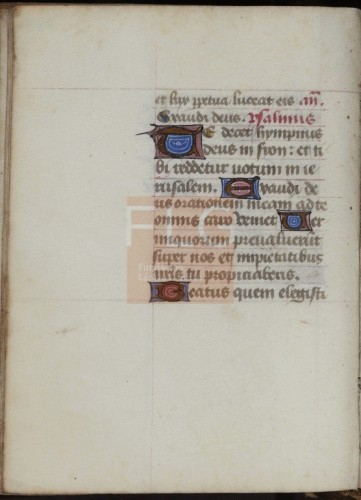 et lux ppetua luceat eis añ.
Exaudi deus. Psalmus
Te decet hympnus
deus in syon: et ti
bi reddetur uotum in ie
rusalem. Exaudi de
us orationem meam ad te
omnis caro veniet Uer
iniquorum preualuerūt
super nos et impietatibus
nr̄is tu propiciaberis.
Beatus quem elegisti